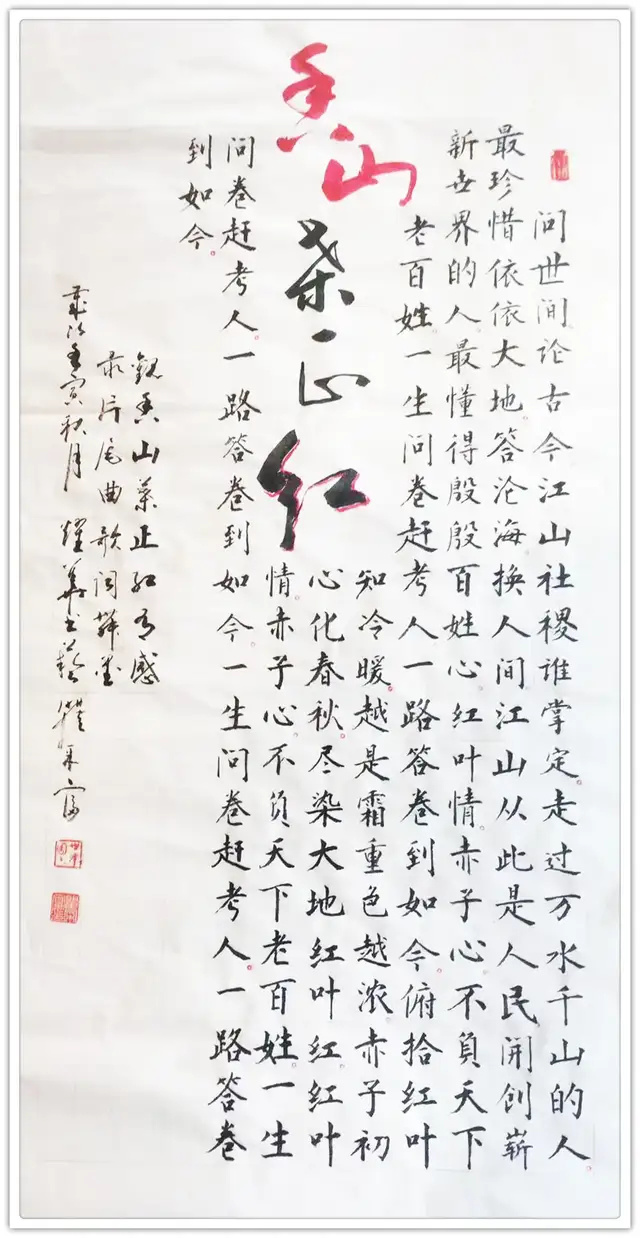 香山
葉正红
问世间论古今江山社稷谁掌定。走过万水千山的人。
最珍惜依依大地。答沧海换人间江山从此是人民开创崭
新世界的人。最懂得殷殷百姓心。红叶情。赤子心。不負天下
老百姓。一生问卷赶考人一路答卷到如今。俯拾红叶
知冷暖。越是霜重色越浓。赤子初
心化春秋。尽染大地红叶红。红叶
情。赤子心。不負天下老百姓。一生
问卷赶考人。一路答卷到如今一生问卷赶考人。一路答卷
到如今。
觀香山葉正红有感
录片尾曲歌词
歲次壬寅秋月 耀華书